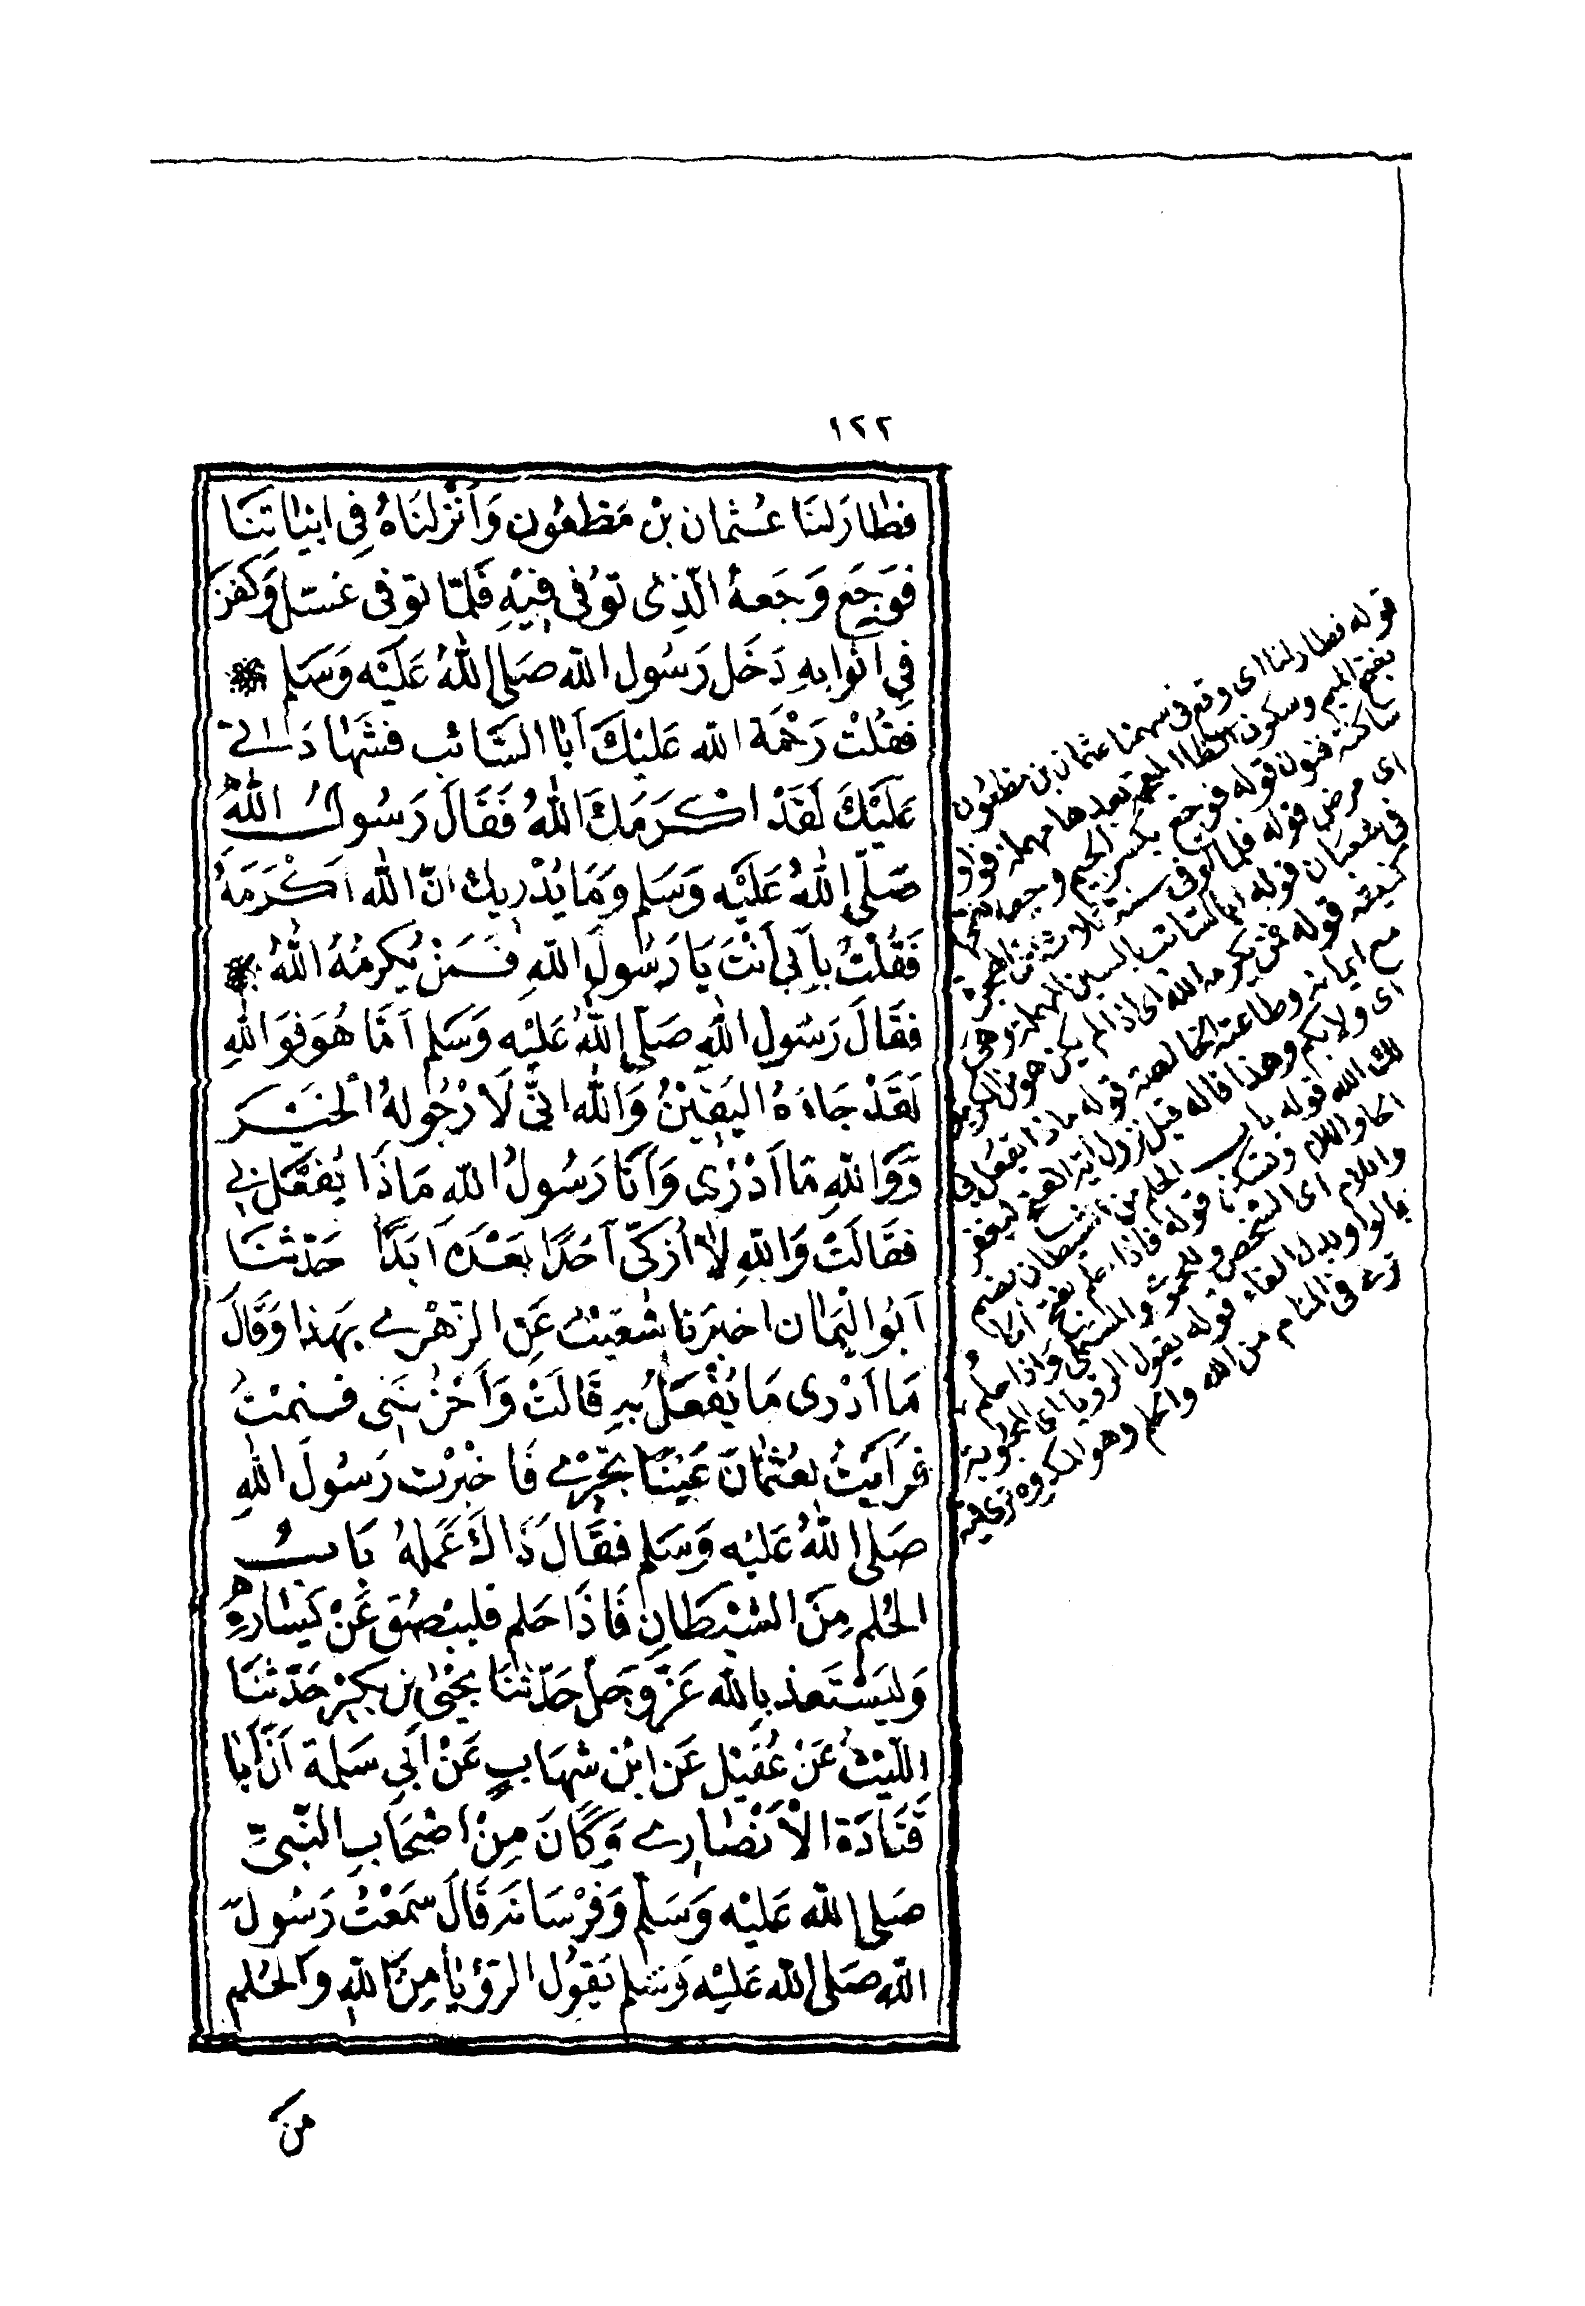 ١٢٢
فطارَلنَا عُثمان بْن مَظعُون وَأنْزلنَاهُ فِي ابْيَاتنَا
فوَجَع وَجَعهُ الّذِى توُفى فِيْهِ فَلمّا توفى غسّل وَكفن
فِي اثوابِهِ دَخَل رَسُول الله صَلى اللهُ عَليْه وَسَلم
فقُلْتُ رَحْمَة الله عَليْكَ اَبَا السَّائب فشَهَادَتي
عَليْكَ لَقَدْ اكْرَمَكَ اللهُ فَقَالَ رَسُولُ اللهُ
صَلّى اللهُ عَليْه وَسَلم وَمَا يُدْرِيك انّ الله اَكْرَمَهُ
فَقُلْتُ بِاَبِي اَنْتَ يَا رَسُولَ اللهِ فَمَنْ يُكرمُهُ اللهُ
فقَالَ رَسُول اللهِ صَلى اللهُ عَليْه وَسَلم اَمَّا هُوَ فوَاللهِ
لَقَدْ جَاءَهُ اليَقِيْنُ وَالله انّى لَارْجُو لهُ الخيْر
وَوَاللهِ مَا اَدْرِى وَاَنَا رَسُولُ الله مَاذَا يُفعَل بي
فقَالَتْ وَاللهِ لاَ اُزكّى اَحَدًا بَعْدَه اَبَدًا حَدّثنَا
اَبُو اليَمَان اخبَرنا شعَيْبٌ عَنِ الزهْري بهَذا وَقالَ
مَا اَدْرى مَا يُفْعَلُ بهِ قَالَتْ وَاَحْزنَنِى فنمْتُ
فرَاَيتُ لعُثمَانَ عَيْنًا تَجْرِي فَاخْبَرْت رَسُولَ اللهِ
صَلى اللهُ عَليْه وَسَلم فقَالَ ذَاكَ عَملهُ بَابُ
الحُلم مِنَ الشيْطَانِ فَاذَا حَلم فليبْصُق عَنْ يَسَارهِ
وَليَسْتَعذ بِالله عَزّ وَجَلّ حَدّثنَا يَحْيى بن بكيْر حَدّثنَا
اللّيْثُ عَنْ عُقيْل عَن ابْن شهَابٍ عَنْ اَبي سَلمة اَنّ اَبَا
قَتَادَة الاَنْصَاري وَكَانَ مِنْ اصْحَابِ النّبىِّ
صَلى الله عَليْه وَسَلّم وَفرْسَانه قَالَ سَمعْتُ رَسُولَ
الله صَلى الله عَليْه وَسَلم يَقوُل الرّؤيَا مِنَ اللهِ وَالحُلم
من
قوله فطار لنا اى وقع فى سهمنا عثمان بن مظعون
بفتح الميم وسكون الظا المعجمة بعدها مهملة فواو
ساكنة فنون قوله فوجع بكسر الجيم وجعه
اى مرض قوله فلما توفى سنة ثلاث من الهجرة
فى شعبان قوله ابا السائب بالسين المهملة وهى
كنيته قوله فمن يكرمه الله اى اذا لم يكن هو من المكرمين
مع ايمانه وطاعته الخالصة قوله ماذا يفعل بى
اى ولا بكم وهذا قاله قبل نزول اية الفتح ليغفر
لك الله قوله باب الحلم من الشيطان بضم
الحاء واللام وتسكن قوله فاذا حلم بفتح الحاء
واللام اى الشخص وللحموى والمستملى واذا حلم
بالواو بدل الفاء قوله يقول الرويا اى المحبوبة
ترى فى المنام من الله والحلم وهو المكروه